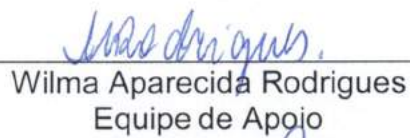 Wilma Aparecida Rodrigues
Equipe de Apoio